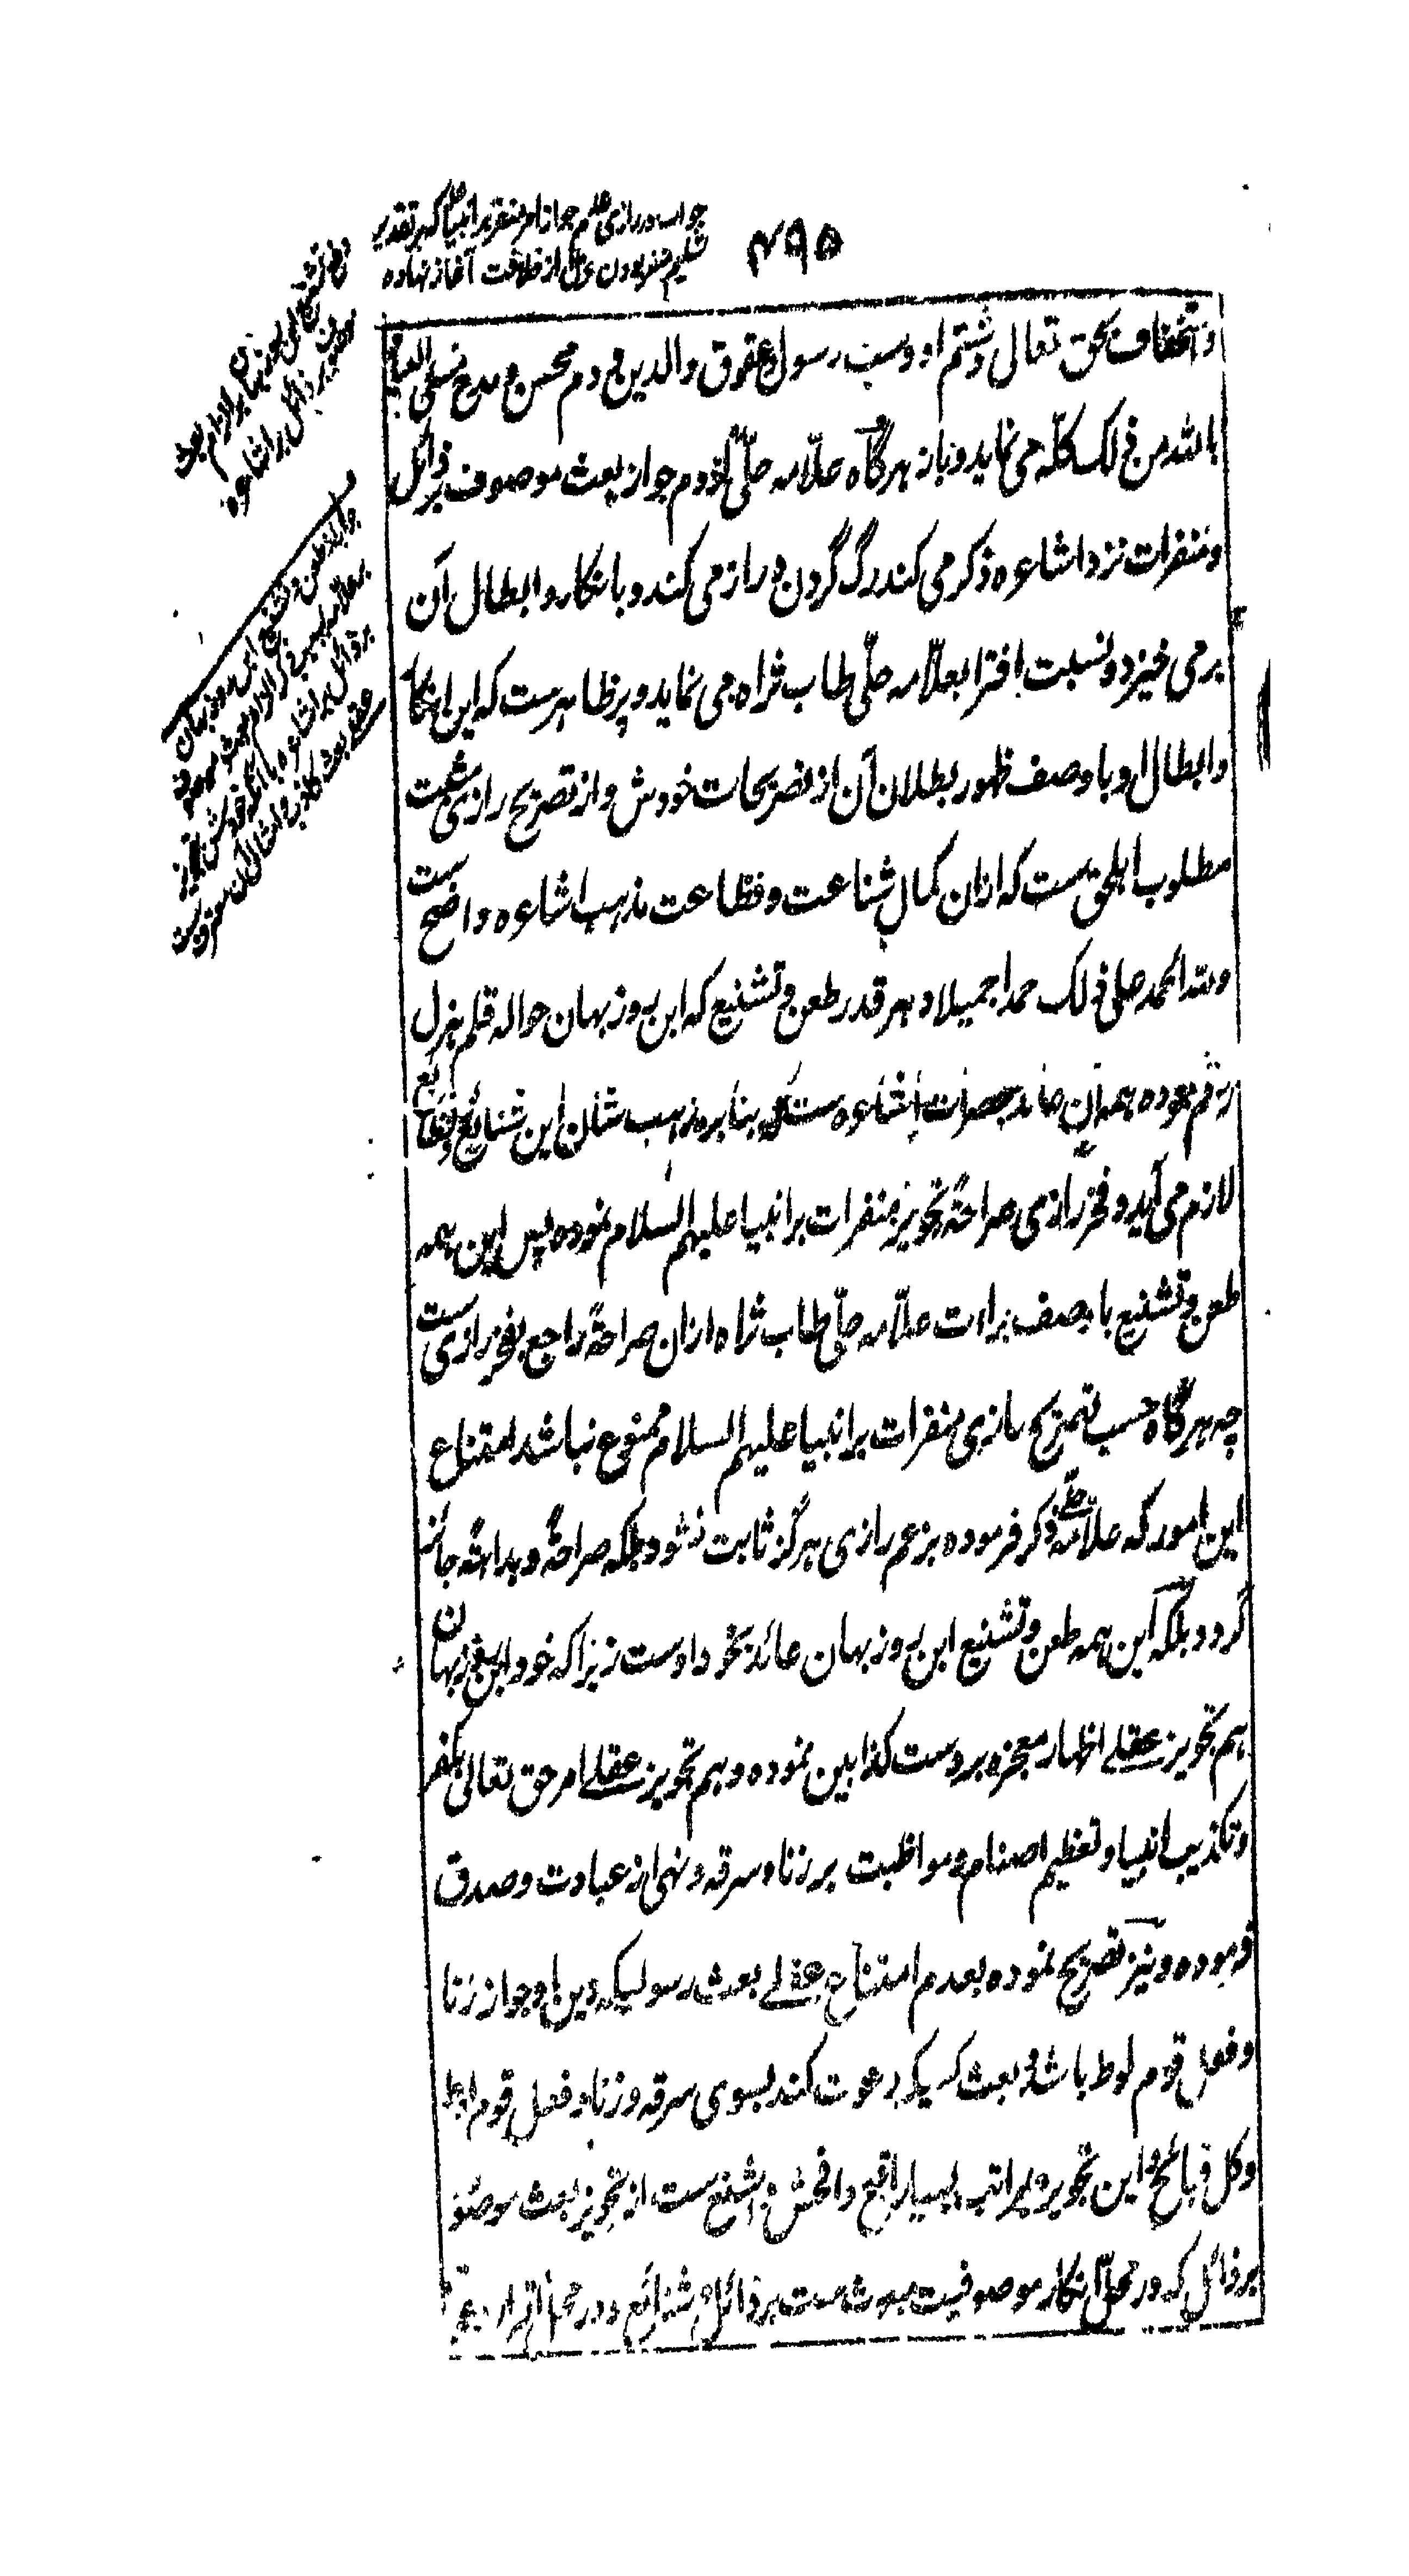 ۴۹۵
جواب رازی عدم جواز امر منفر بر انبیا که بر تقدیر
تسلیم منفر بودن عزل از خلافت آغاز نهاده
و استخفاف بحق تعالی و شتم او و سب رسول و عقوق والدین و ذم محسن و مدح مسئ العیاذ
بالله من ذلک کله می نماید و باز هرگاه علّامه حلّی لزوم جواز بعث موصوف برذائل
و منفرات نزد اشاعره ذکر می کند رگ گردن دراز می کند و بانکار و ابطال آن
بر می خیزد و نسبت افترا بعلّامه حلّی طاب ثراه می نماید و پر ظاهرست که این انکار
و ابطال او با وصف ظهور بطلان آن از تصریحات خودش و از تصریح رازی مثبت
مطلوب اهل حق ست که ازان کمال شناعت و فظاعت مذهب اشاعره واضح ست
و لله الحمد علی ذلک حمدا جمیلا و هر قدر طعن و تشنیع که ابن روزبهان حواله قلم هزل
رقم نموده همه آن عائد بحضرات اشاعره ست که بنابر مذهب شان این شنائع و فظائع
لازم می آید و فخر رازی صراحةً تجویز منفرات بر انبیا علیهم السلام نموده پس این همه
طعن و تشنیع با وصف براءت علّامه حلّی طاب ثراه ازان صراحةً راجع بفخر رازی ست
چه هرگاه حسب تصریح رازی منفرات بر انبیا علیهم السلام ممنوع نباشد امتناع
این امور که علّامه حلّی ذکر فرموده بزعم رازی هرگز ثابت نشود بلکه صراحةً و بداهةً جائز
گردد بلکه این همه طعن و تشنیع ابن روزبهان عائد بخود اوست زیرا که خود ابن روزبهان
هم تجویز عقلے اظهار معجزه بر دست کذابین نموده و هم تجویز عقلے امر حق تعالی بکفر
و تکذیب انبیا و تعظیم اصنام و مواظبت بر زنا و سرقه و نهی از عبادت و صدق
فرموده و نیز تصریح نموده بعدم امتناع عقلے بعث رسولیکه دین او جواز زنا
و فعل قوم لوط باشد و بعث کسیکه دعوت کند بسوی سرقه و زنا و فعل قوم لوط
و کل قبائح و این تجویز بمراتب بسیار اقبح و افحش و اشنع ست از تجویز بعث موصوف
برذائل که در محل انکار موصوفیت مبعوث ست برذائل و شنائع و در محل